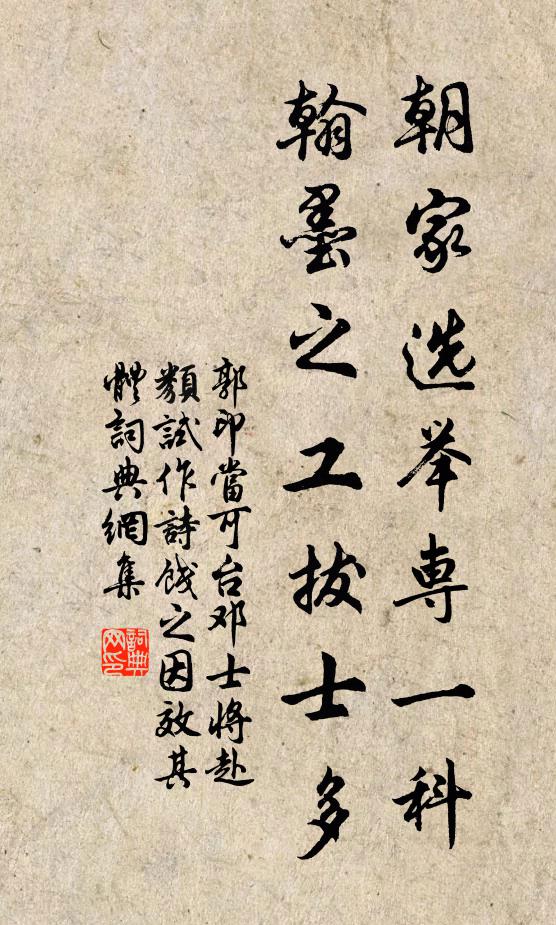 朝家选举専一科
翰墨之工拔士多
郭印當可台邓士將赴
類試作詩餞之因效其
體詞典網集
詞典
网印